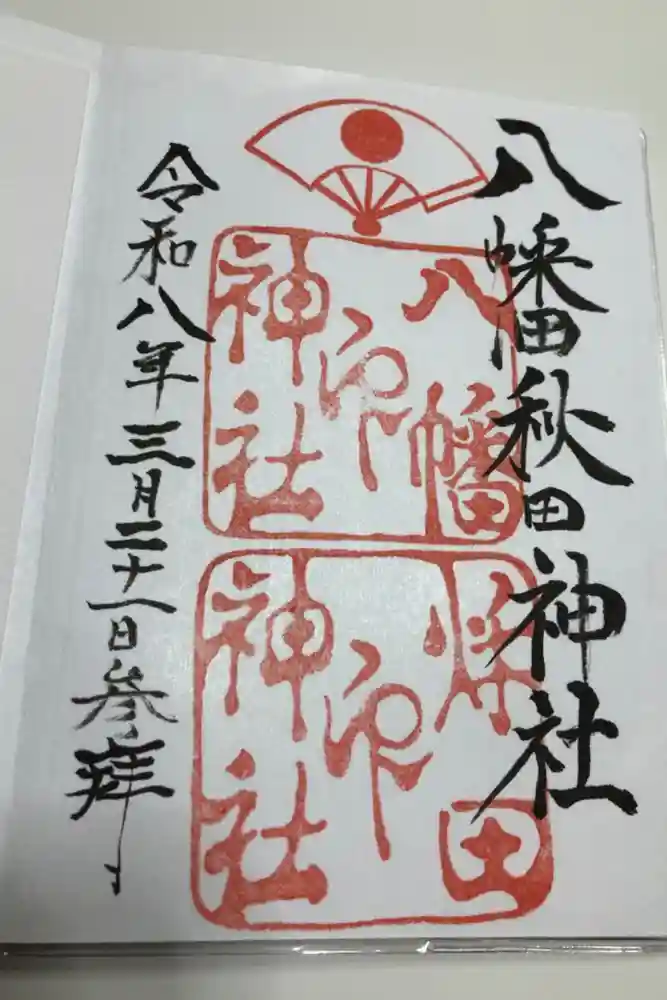 八幡秋田神社
八幡
印
神社
秋田
印
神社
令和八年三月二十一日参拝